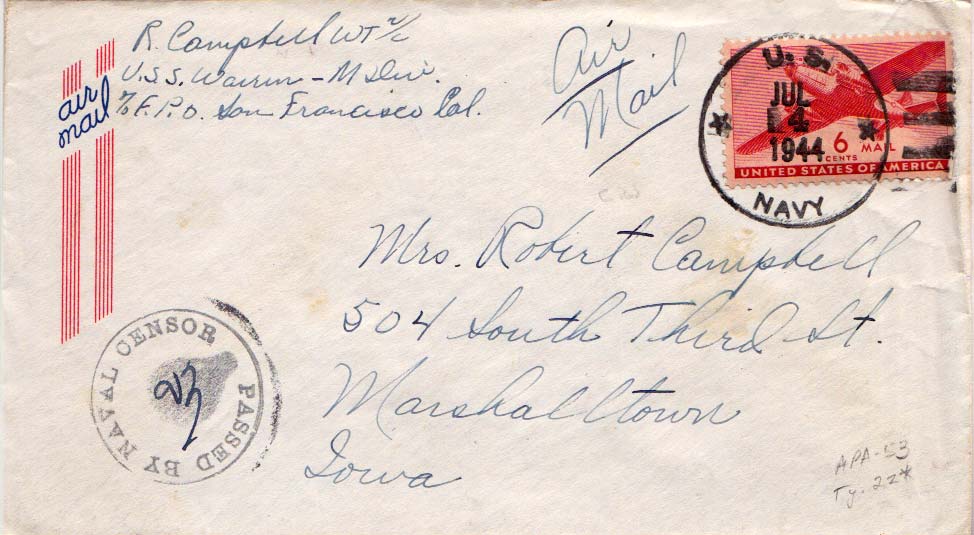 R. Campbell WT 2/c
U.S.S. Warren - M Div.
℅ F.P.O. San Francisco Cal.
air
mail
Air
Mail
U.S.
JUL
4
1944
NAVY
6
CENTS
MAIL
UNITED STATES OF AMERICA
Mrs. Robert Campbell
504 South Third St.
Marshalltown
Iowa
PASSED BY NAVAL CENSOR
APA-53
Ty. 2z*